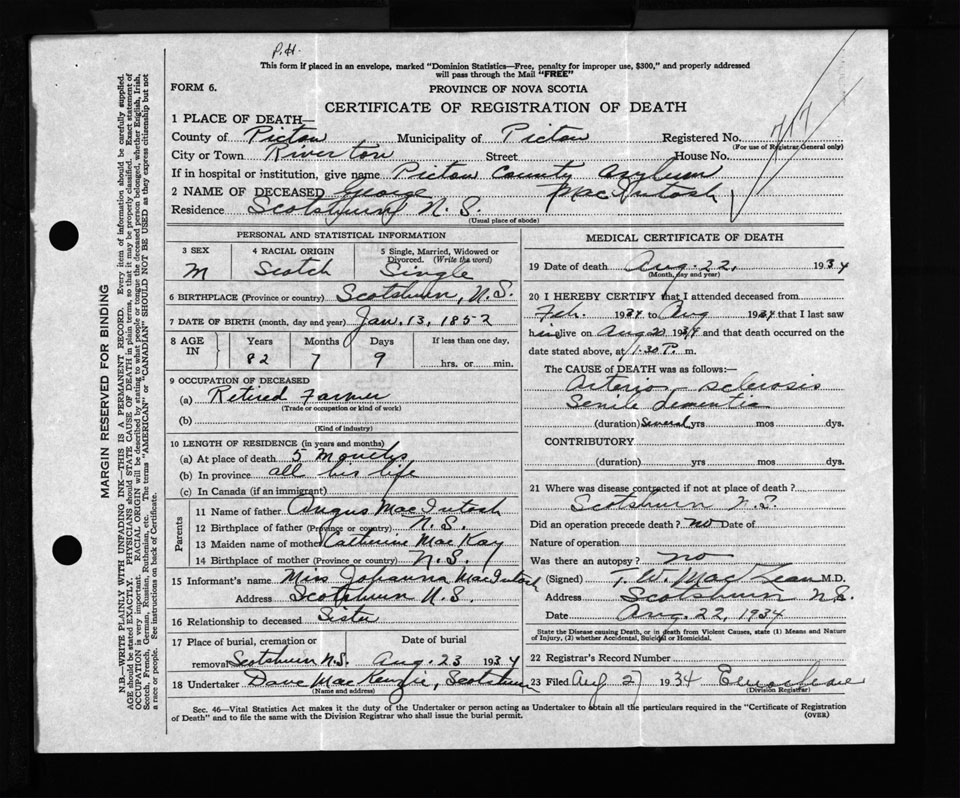 P.H.
This form if placed in an envelope, marked "Dominion Statistics—Free, penalty for improper use, $300," and properly addressed
will pass through the Mail "FREE"
FORM 6.
PROVINCE OF NOVA SCOTIA
CERTIFICATE OF REGISTRATION OF DEATH
717
1 PLACE OF DEATH—
County of Pictou Municipality of Pictou Registered No.
(For use of Registrar General only)
City or Town Riverton Street House No.
If in hospital or institution, give name Pictou County Asylum
2 NAME OF DECEASED George MacIntosh
Residence Scotsburn N.S.
(Usual place of abode)
PERSONAL AND STATISTICAL INFORMATION
3 SEX 4 RACIAL ORIGIN 5 Single, Married, Widowed or
Divorced. (Write the word)
M Scotch Single
6 BIRTHPLACE (Province or country) Scotsburn, N.S.
7 DATE OF BIRTH (month, day and year) Jan. 13, 1852
8 AGE IN Years Months Days If less than one day,
82 7 9 hrs. or min.
9 OCCUPATION OF DECEASED
(a) Retired Farmer
(Trade or occupation or kind of work)
(b)
(Kind of industry)
10 LENGTH OF RESIDENCE (in years and months)
(a) At place of death 5 Months
(b) In province all his life
(c) In Canada (if an immigrant)
Parents
11 Name of father Angus MacIntosh
12 Birthplace of father (Province or country) N.S.
13 Maiden name of mother Catherine MacKay
14 Birthplace of mother (Province or country) N.S.
15 Informant's name Miss Johanna MacIntosh
Address Scotsburn N.S.
16 Relationship to deceased Sister
17 Place of burial, cremation or Date of burial
removal Scotsburn N.S. Aug. 23 1934
18 Undertaker Dave MacKenzie, Scotsburn
(Name and address)
MEDICAL CERTIFICATE OF DEATH
19 Date of death Aug. 22, 1934
(Month, day and year)
20 I HEREBY CERTIFY that I attended deceased from
Feb. 1934 to Aug 1934 that I last saw
him live on Aug 20 1934 and that death occurred on the
date stated above, at 1.30 P. m.
The CAUSE of DEATH was as follows:—
Arterio-sclerosis
Senile dementia
(duration) Several yrs mos dys.
CONTRIBUTORY
(duration) yrs mos dys.
21 Where was disease contracted if not at place of death?
Scotsburn N.S.
Did an operation precede death? no Date of
Nature of operation
Was there an autopsy? no
(Signed) W. MacLean M.D.
Address Scotsburn N.S.
Date Aug. 22, 1934
State the Disease causing Death, or in death from Violent Causes, state (1) Means and Nature
of Injury, (2) whether Accidental, Suicidal or Homicidal.
22 Registrar's Record Number
23 Filed Aug 27 1934
(Division Registrar)
Sec. 46—Vital Statistics Act makes it the duty of the Undertaker or person acting as Undertaker to obtain all the particulars required in the "Certificate of Registration
of Death" and to file the same with the Division Registrar who shall issue the burial permit. (OVER)
MARGIN RESERVED FOR BINDING
N.B.—WRITE PLAINLY WITH UNFADING INK—THIS IS A PERMANENT RECORD. Every item of information should be carefully supplied.
AGE should be stated EXACTLY. PHYSICIANS should STATE CAUSE OF DEATH in plain terms, so that it may be properly classified. Exact statement of
OCCUPATION is very important. RACIAL ORIGIN will be described by stating to what people or tongue the deceased person belonged, whether English, Irish,
Scotch, French, German, Russian, Ruthenian, etc. The terms "AMERICAN" or "CANADIAN" SHOULD NOT BE USED as they express citizenship but not
a race or people. See instructions on back of Certificate.